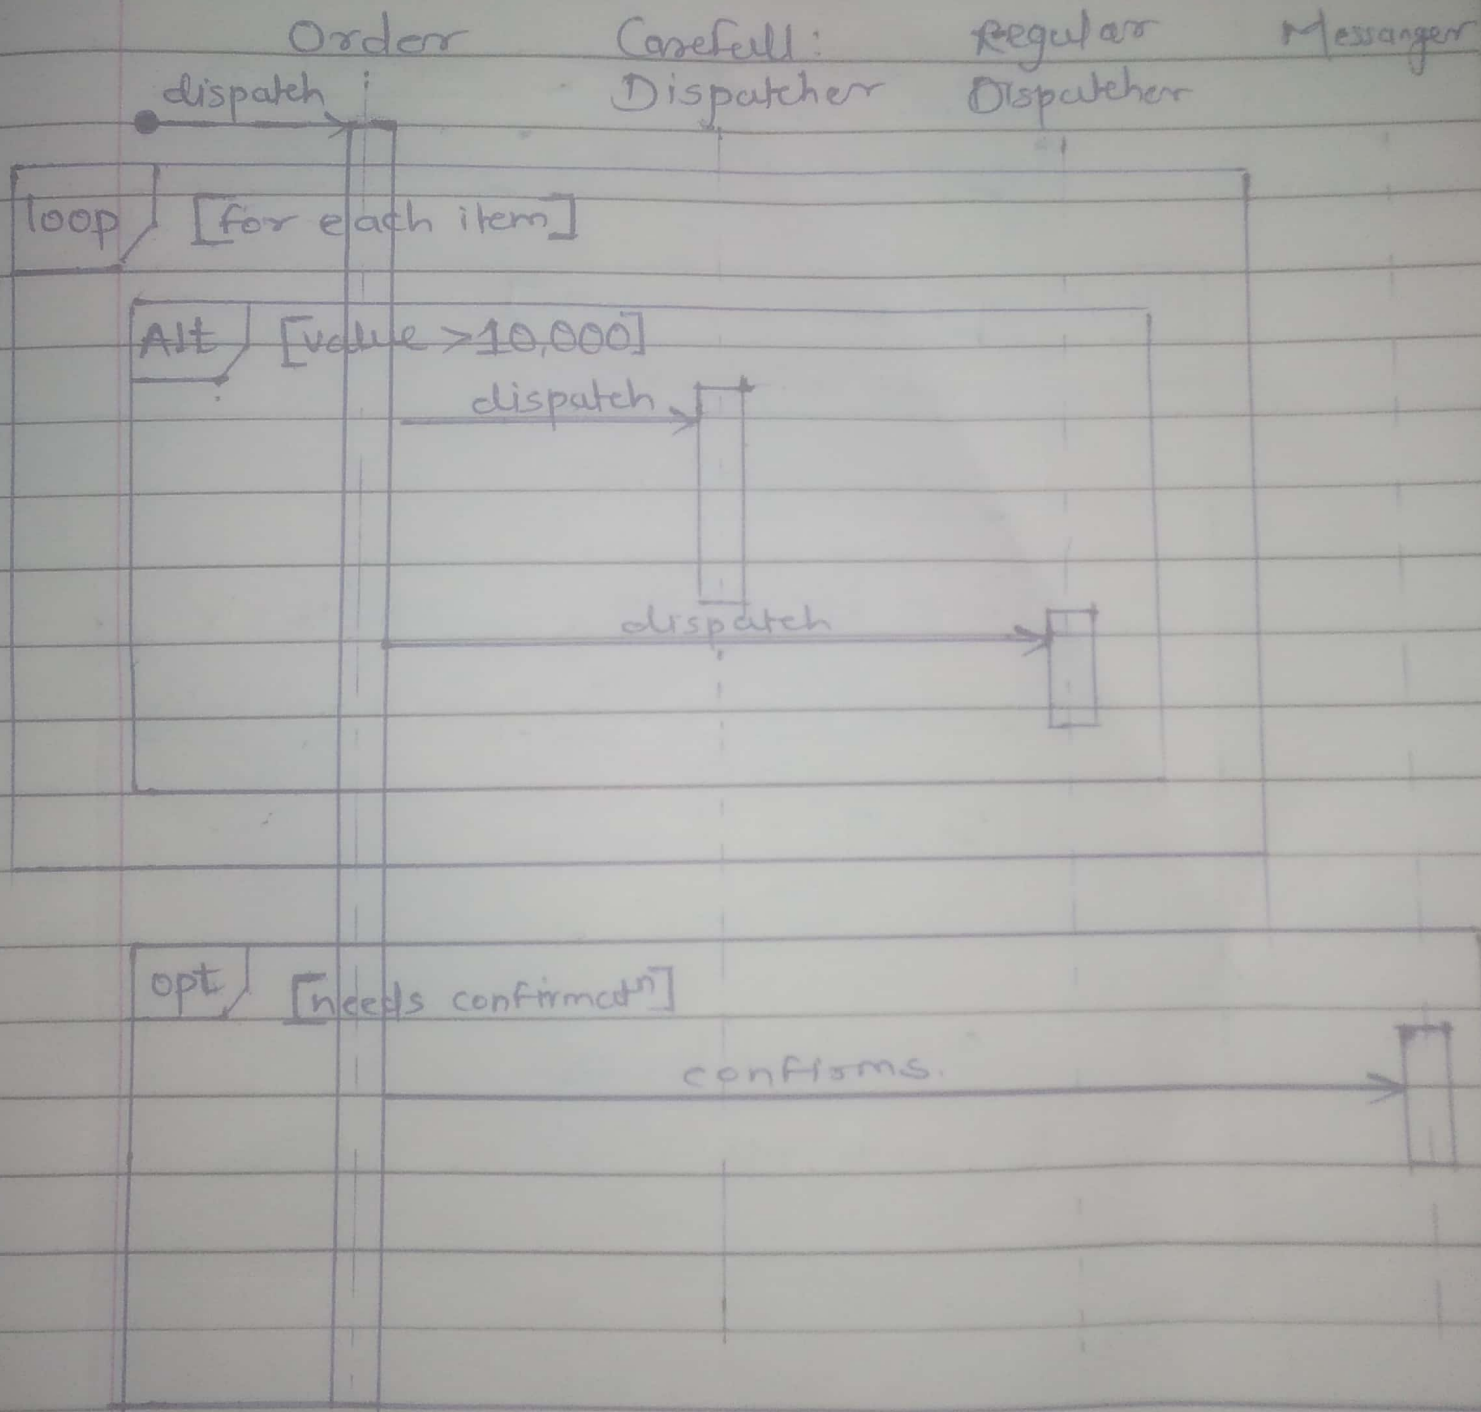 Order Carefull: Regular Messanger
Dispatcher Dispatcher
dispatch
loop [for each item]
Alt [value >10,000]
dispatch
dispatch
opt [needs confirmatn]
confirms.